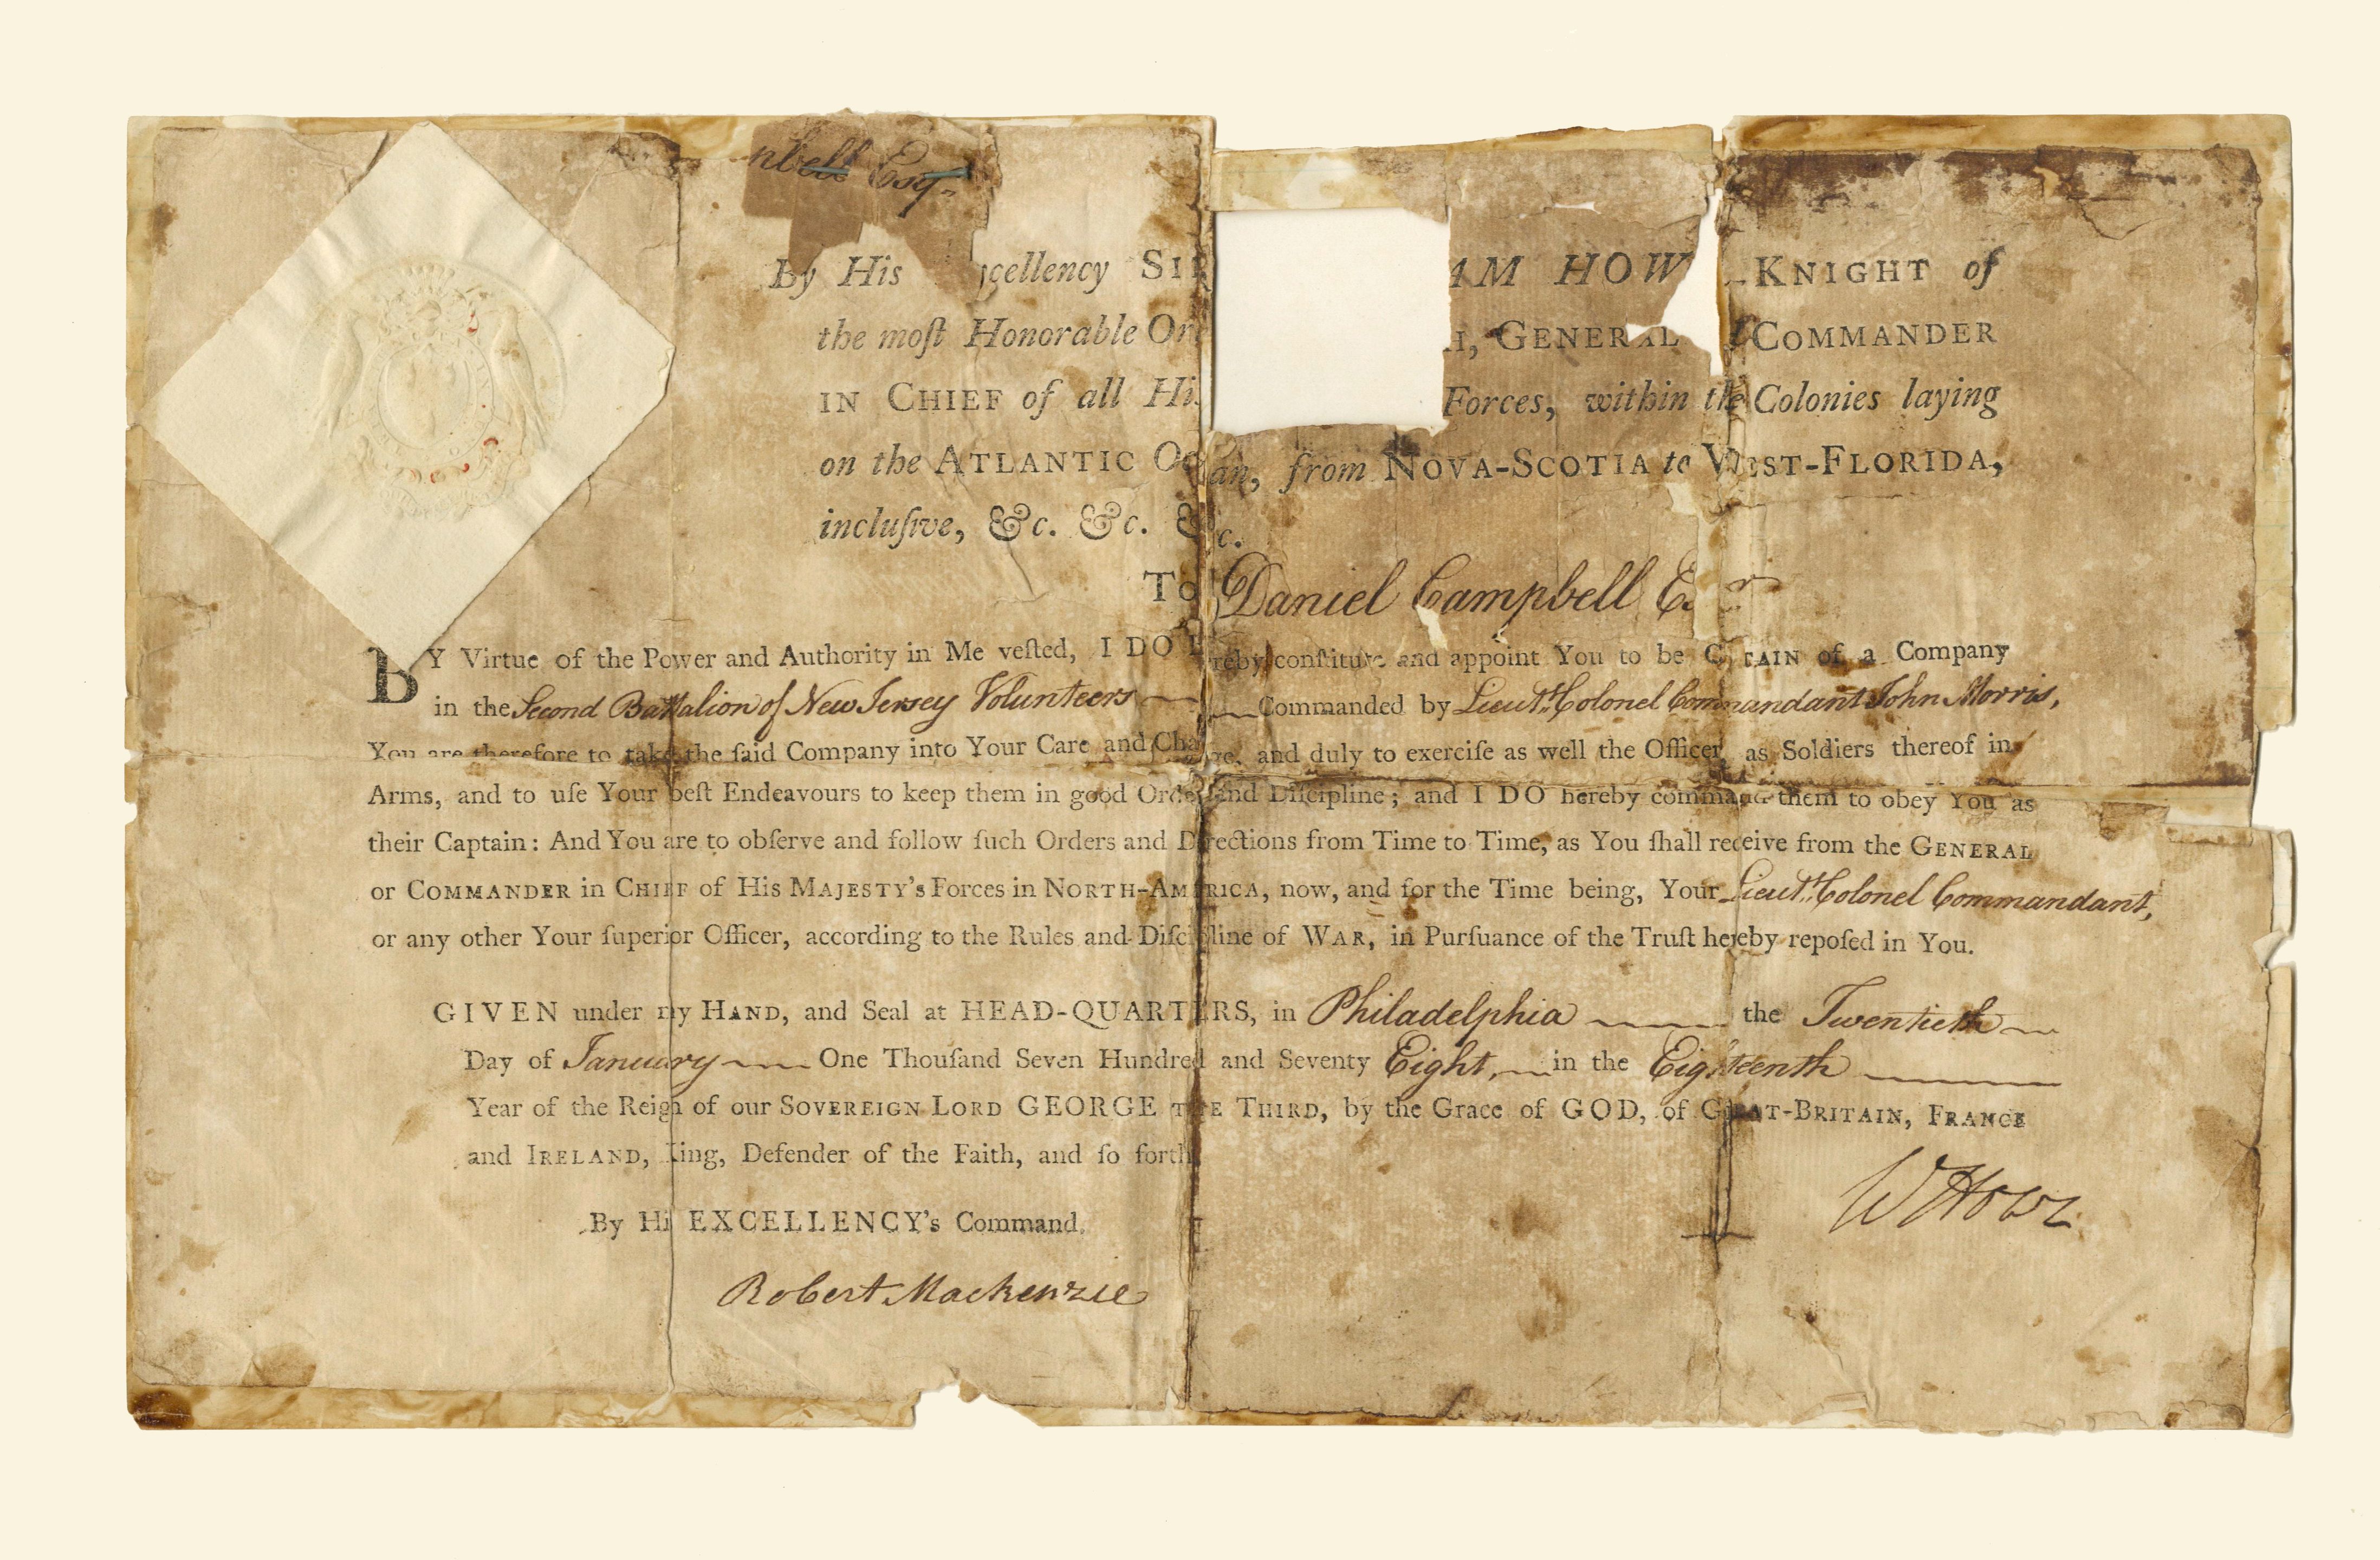 nbell Esq.
By His xcellency SIR AM HOW KNIGHT of
the moſt Honorable Or H, GENERAL COMMANDER
IN CHIEF of all His Forces, within the Colonies laying
on the ATLANTIC Ocean, from NOVA-SCOTIA to WEST-FLORIDA,
incluſive, &c. &c. &c.
To Daniel Campbell Esqr
BY Virtue of the Power and Authority in Me veſted, I DO Hereby conſtitute and appoint You to be CAPTAIN of a Company
in the Second Battalion of New Jersey Volunteers Commanded by Lieut. Colonel Commandant John Morris,
You are therefore to take the ſaid Company into Your Care and Charge, and duly to exerciſe as well the Officers as Soldiers thereof in
Arms, and to uſe Your beſt Endeavours to keep them in good Order and Diſcipline; and I DO hereby command them to obey You as
their Captain: And You are to obſerve and follow ſuch Orders and Directions from Time to Time, as You ſhall receive from the GENERAL
or COMMANDER in CHIEF of His MAJESTY's Forces in NORTH-AMERICA, now, and for the Time being, Your Lieut. Colonel Commandant,
or any other Your ſuperior Officer, according to the Rules and Diſcipline of WAR, in Purſuance of the Truſt hereby repoſed in You.
GIVEN under my HAND, and Seal at HEAD-QUARTERS, in Philadelphia the Twentieth
Day of January One Thouſand Seven Hundred and Seventy Eight, in the Eighteenth
Year of the Reign of our SOVEREIGN LORD GEORGE THE THIRD, by the Grace of GOD, of GREAT-BRITAIN, FRANCE
and IRELAND, King, Defender of the Faith, and ſo forth
By His EXCELLENCY's Command.
W Howe
Robert Mackenzie